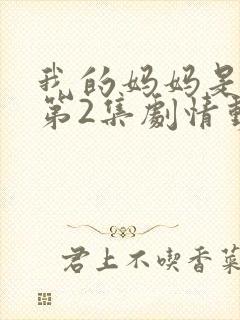 我的妈妈是
第2集劇情
君上不喫香菜